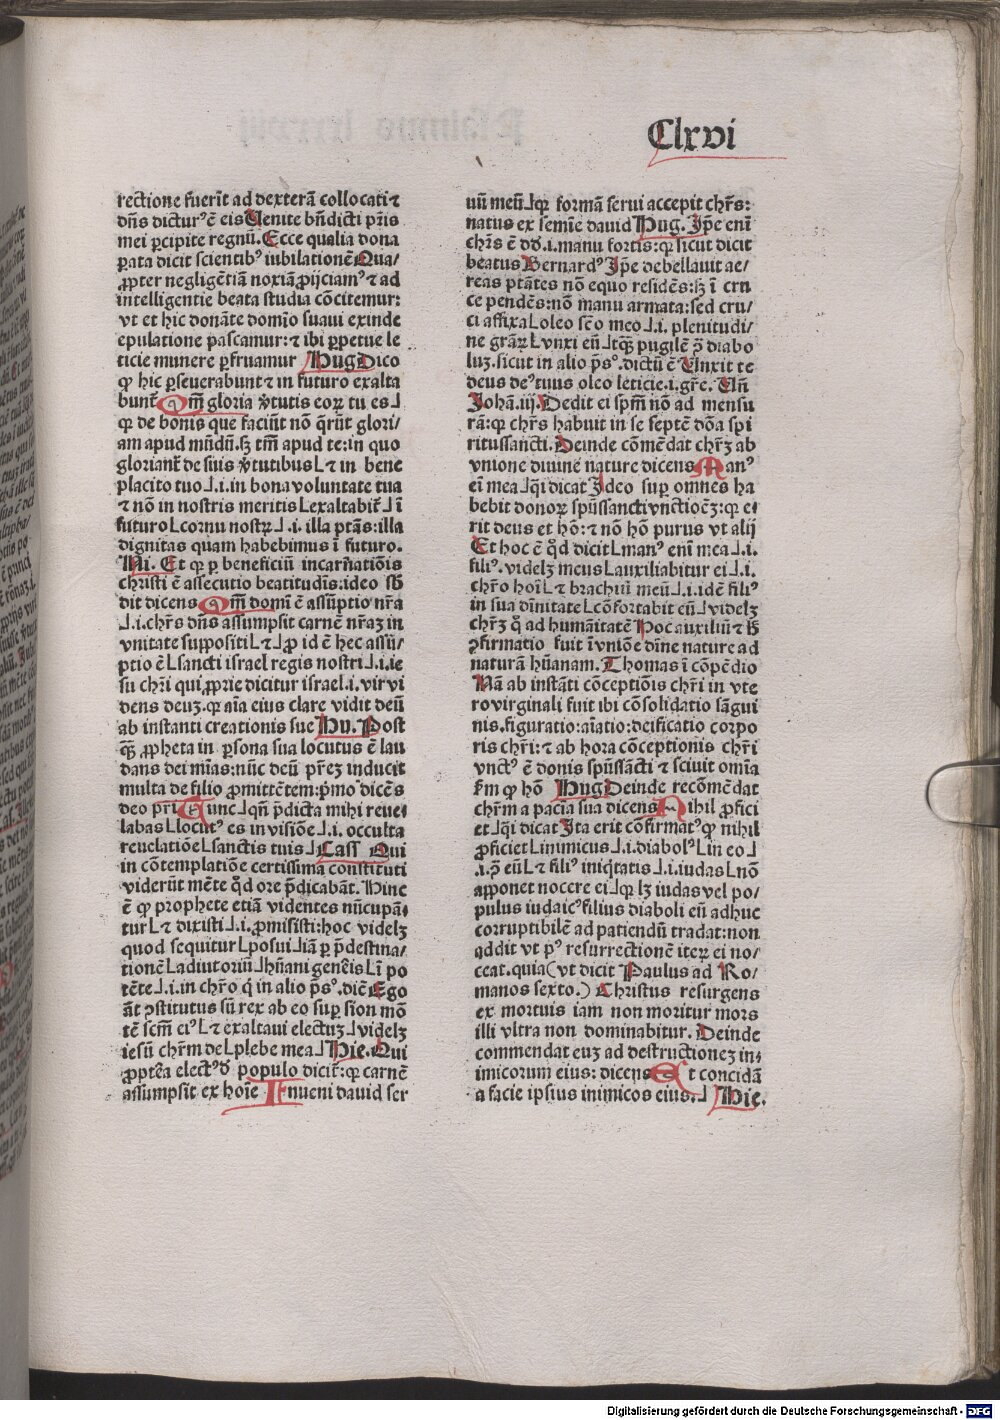 Clxvi
rectione fuerīt ad dexterā collocati ⁊
dn̄s dictur᾿ ē eis Uenite bn̄dicti pr̄is
mei ꝑcipite regnū. Ecce qualia dona
ꝑata dicit scientibꝰ iubilationē Qua/
ꝓpter negligētiā noxiā ꝓijciamꝰ ⁊ ad
intelligentie beata studia cōcitemur:
vt et hic donāte domīo suaui exinde
epulatione pascamur: ⁊ ibi ꝑpetue le
ticie munere ꝑfruamur Hug Dico
ꝙ hic ꝑseuerabunt ⁊ in futuro exalta
bunt᷑ Qm̄ gloria v̓tutis eoꝝ tu es⅃
ꝙ de bonis que faciūt nō q̄rūt glori/
am apud mūdū. sꝫ tm̄ apud te: in quo
gloriant᷑ de suis v̓tutibus L⁊ in bene
placito tuo⅃.i. in bona voluntate tua
⁊ nō in nostris meritis Lexaltabit᷑⅃ ī
futuro Lcornu nostꝝ⅃.i. illa ptās: illa
dignitas quam habebimus ī futuro.
Ni. Et ꝙ ꝑ beneficiū incarn̄atiōis
christi ē assecutio beatitudīs: ideo sb̄
dit dicens Qm̄ domī ē assūptio nr̄a
⅃.i. chr̄s dn̄s assumpsit carnē nr̄aꝫ in
vnitate suppositi L⁊⅃ ꝓ id ē hec assū/
ptio ē Lsancti israel regis nostri⅃.i. ie
su chr̄i qui ꝓprie dicitur israel.i. vir vi
dens deuꝫ. ꝙ aīa eius clare vidit deū
ab instanti creationis sue Hu. Post
qꝫ̄ ꝓpheta in ꝑsona sua locutus ē lau
dans dei mīas: nūc deū pr̄eꝫ inducit
multa de filio ꝓmittētem: p̄mo dicēs
deo pr̄i Tunc⅃qn̄ p̄dicta mihi reue⸗
labas Llocutꝰ es in visiōe⅃.i. occulta
reuelatiōe Lsanctis tuis⅃ Cass Qui
in cōtemplatiōe certissima constituti
viderūt mēte qd̄ ore p̄dicabāt. Hinc
ē ꝙ prophete etiā videntes nūcupā⸗
tur L⁊ dixisti⅃.i. ꝓmisisti: hoc videlꝫ
quod sequitur Lposui⅃iā ꝑ p̄destina/
tionē Ladiutoriū⅃hūani genēis Lī po
tēte⅃.i. in chr̄o q̓ in alio pꝰsꝰ. dic̄ Ego
āt ꝯstitutus sū rex ab eo suꝑ sion mō
tē scm̄ eiꝰ L⁊ exaltaui electuꝫ⅃videlꝫ
iesū chr̄m de Lplebe mea⅃ Hie. Qui
ꝓptēa electꝰ d̓ populo dicit᷑: ꝙ carnē
assumpsit ex hoīe Inueni dauid ser
uū meū⅃ꝙ formā serui accepit chr̄s:
natus ex semīe dauid Hug. Ip̄e eni
chr̄s ē dd̄.i. manu fortis: ꝙ sicut dicit
beatus Bernardꝰ Ip̄e debellauit ae/
reas ptātes nō equo residēs: sꝫ ī cru
ce pendēs: nō manu armata: sed cru/
ci affixa Loleo scō meo⅃.i. plenitudi/
ne grāꝝ Lvnxi eū⅃tqꝫ̄ pugilē ꝯ̄ diabo
luꝫ. sicut in alio pꝰsꝰ. dictū ē Unxit te
deus deꝰ tuus oleo leticie.i. gr̄e. Un̄
Johā.iij. Dedit ei spm̄ nō ad mensu
rā: ꝙ chr̄s habuit in se septē dōa spi
ritussancti. Deinde cōmēdat chr̄ꝫ ab
vnione diuine nature dicens Manꝰ
eī mea⅃q̄i dicat Ideo suꝑ omnes ha
bebit donoꝝ spūssancti vnctiōeꝫ: ꝙ e⸗
rit deus et hō: ⁊ nō hō purus vt alij
Et hoc ē qd̄ dicit Lmanꝰ enī mea⅃.i.
filiꝰ. videlꝫ meus Lauxiliabitur ei⅃.i.
chr̄o hoī L⁊ brachiū meū⅃.i. idē filiꝰ
in sua diuīnitate Lcōfortabit eū⅃videlꝫ
chr̄ꝫ q̓ ad humāitatē Hoc auxiliū ⁊ h̄
ꝯfirmatio fuit ī vniōe dīne nature ad
naturā hūanam. Thomas ī cōpēdio
Nā ab instāti cōceptiōis chr̄i in vte
ro virginali fuit ibi cōsolidatio sāgui
nis. figuratio: aīatio: deificatio corpo
ris chr̄i: ⁊ ab hora cōceptionis chr̄i
vnctꝰ ē donis spūssācti ⁊ sciuit omīa
ẜm ꝙ hō Hug Deinde recōmēdat
chr̄m a pacīa sua dicens Nihil ꝓfici
et⅃q̄i dicat Ita erit cōfirmatꝰ ꝙ nihil
ꝓficiet Linimicus⅃.i. diabolꝰ Lin eo⅃
.i. ꝯ̄ eū L⁊ filiꝰ iniq̓tatis⅃.i. iudas Lnō
apponet nocere ei⅃ꝙ lꝫ iudas vel po/
pulus iudaicꝰ filius diaboli eū adhuc
corruptibilē ad patiendū tradat: non
addit vt pꝰ resurrectionē iteꝝ ei no/
ceat. quia (vt dicit Paulus ad Ro/
manos sexto.) Christus resurgens
ex mortuis iam non moritur mors
illi vltra non dominabitur. Deinde
commendat euꝫ ad destructioneꝫ in⸗
imicorum eius: dicens Et concidā
a facie ipsius inimicos eius.⅃ Hie.
Digitalisierung gefördert durch die Deutsche Forschungsgemeinschaft - DFG